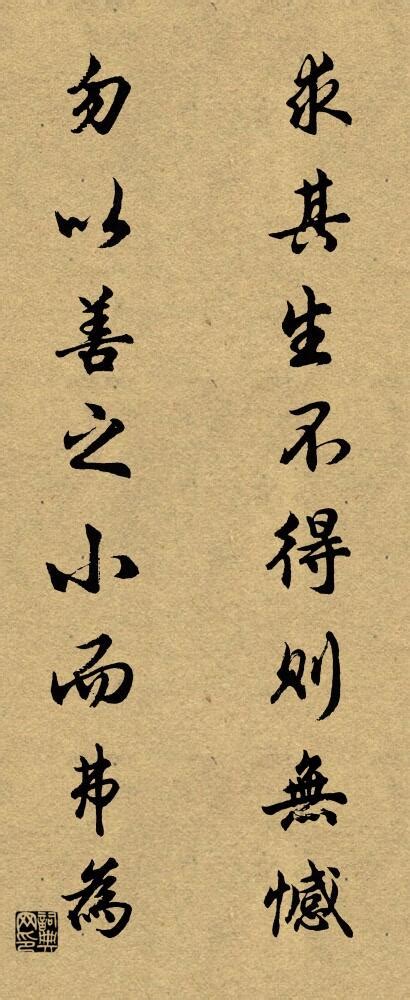 求其生不得則無憾
勿以善之小而弗為
詞典网印